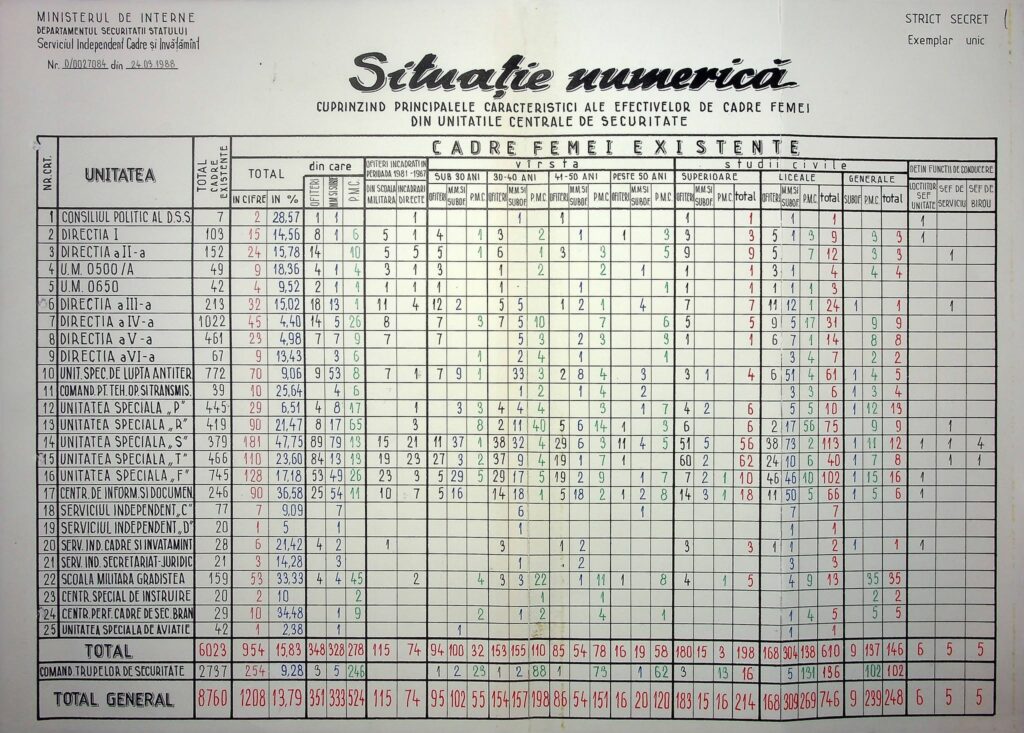 MINISTERUL DE INTERNE
DEPARTAMENTUL SECURITATII STATULUI
Serviciul Independent Cadre și Invățămint
Nr. D/0027084 din 24.03.1988
STRICT SECRET
Exemplar unic
Situație numerică
CUPRINZIND PRINCIPALELE CARACTERISTICI ALE EFECTIVELOR DE CADRE FEMEI
DIN UNITATILE CENTRALE DE SECURITATE
NR. CRT. UNITATEA TOTAL CADRE EXISTENTE CADRE FEMEI EXISTENTE
TOTAL din care OFIȚERI INCADRATI IN PERIOADA 1981-1987 vîrsta studii civile DETIN FUNCTII DE CONDUCERE
SUB 30 ANI 30-40 ANI 41-50 ANI PESTE 50 ANI SUPERIOARE LICEALE GENERALE
IN CIFRE IN % OFITERI MM SI SUBOF P.M.C. DIN SCOALA MILITARA INCADRARI DIRECTE OFITERI M.M SI SUBOF. P.M.C. OFITERI M.M SI SUBOF. P.M.C. OFITERI M.M SI SUBOF. P.M.C. OFITERI M.M SI SUBOF. P.M.C. OFITERI M.M SI SUBOF. P.M.C. total OFITERI M.M SI SUBOF. P.M.C. total SUBOF. P.M.C. total LOCTIITOR SEF UNITATE SEF DE SERVICIU SEF DE BIROU
1 CONSILIUL POLITIC AL D.S.S. 7 2 28,57 1 1 1 1 1 1 1 1 1 1
2 DIRECTIA I 103 15 14,56 8 1 6 5 1 4 1 3 2 1 1 3 3 3 5 1 3 9 3 3 1
3 DIRECTIA a II-a 152 24 15,78 14 10 5 5 5 6 1 3 3 5 9 9 5 7 12 3 3 1
4 U.M. 0500/A 49 9 18,36 4 1 4 3 1 3 1 2 2 1 1 1 3 1 4 4 4
5 U.M. 0650 42 4 9,52 2 1 1 1 1 1 1 1 1 1 1 1 1 3
6 DIRECTIA a III-a 213 32 15,02 18 13 1 11 4 12 2 5 5 1 2 1 4 7 7 11 12 1 24 1 1 1
7 DIRECTIA a IV-a 1022 45 4,40 14 5 26 8 7 3 7 5 10 7 6 5 5 9 5 17 31 9 9
8 DIRECTIA a V-a 461 23 4,98 7 7 9 7 7 5 3 2 3 3 1 1 6 7 1 14 8 8
9 DIRECTIA a VI-a 67 9 13,43 3 6 1 2 4 1 1 3 4 7 2 2
10 UNIT. SPEC. DE LUPTA ANTITER. 772 70 9,06 9 53 8 7 1 7 9 1 33 3 2 8 4 3 3 1 4 6 51 4 61 1 4 5
11 COMAND. PT. TEH. OP. SI TRANSMIS. 39 10 25,64 4 6 1 2 1 4 2 3 3 6 1 3 4
12 UNITATEA SPECIALA „P" 445 29 6,51 4 8 17 1 3 3 4 4 4 3 1 7 4 2 6 5 5 10 1 12 13
13 UNITATEA SPECIALA „R" 419 90 21,47 8 17 65 3 8 2 11 40 5 6 14 1 3 6 6 2 17 56 75 9 9 1
14 UNITATEA SPECIALA „S" 379 181 47,75 89 79 13 15 21 11 37 1 38 32 4 29 6 3 11 4 5 51 5 56 38 73 2 113 1 11 12 1 1 4
15 UNITATEA SPECIALA „T" 466 110 23,60 84 13 13 19 23 27 3 2 37 9 4 19 1 7 1 60 2 62 24 10 6 40 1 7 8 1 1
16 UNITATEA SPECIALA „F" 745 128 17,18 53 49 26 23 3 5 29 5 29 17 5 19 2 9 1 7 7 2 1 10 46 46 10 102 1 15 16 1
17 CENTR. DE INFORM. SI DOCUMEN. 246 90 36,58 25 54 11 10 7 5 16 14 18 1 5 18 2 1 2 8 14 3 1 18 11 50 5 66 1 5 6 1
18 SERVICIUL INDEPENDENT „C" 77 7 9,09 7 6 1 7 7
19 SERVICIUL INDEPENDENT „D" 20 1 5 1 1 1 1
20 SERV. IND. CADRE SI INVATAMINT 28 6 21,42 4 2 1 3 1 2 3 3 1 1 2 1 1 1
21 SERV. IND. SECRETARIAT-JURIDIC 21 3 14,28 3 1 2 3 3
22 SCOALA MILITARA GRADISTEA 159 53 33,33 4 4 45 2 4 3 3 22 1 11 1 8 4 1 5 4 9 13 35 35
23 CENTR. SPECIAL DE INSTRUIRE 20 2 10 2 1 1 2 2
24 CENTR. PERF. CADRE DE SEC. BRAN 29 10 34,48 1 9 2 1 2 4 1 1 4 5 5 5
25 UNITATEA SPECIALA DE AVIATIE 42 1 2,38 1 1 1 1
TOTAL 6023 954 15,83 348 328 278 115 74 94 100 32 153 155 110 85 54 78 16 19 58 180 15 3 198 168 304 138 610 9 137 146 6 5 5
COMAND TRUPELOR DE SECURITATE 2737 254 9,28 3 5 246 1 2 23 1 2 88 1 73 1 62 3 13 16 5 131 136 102 102
TOTAL GENERAL 8760 1208 13,79 351 333 524 115 74 95 102 55 154 157 198 86 54 151 16 20 120 183 15 16 214 168 309 269 746 9 239 248 6 5 5